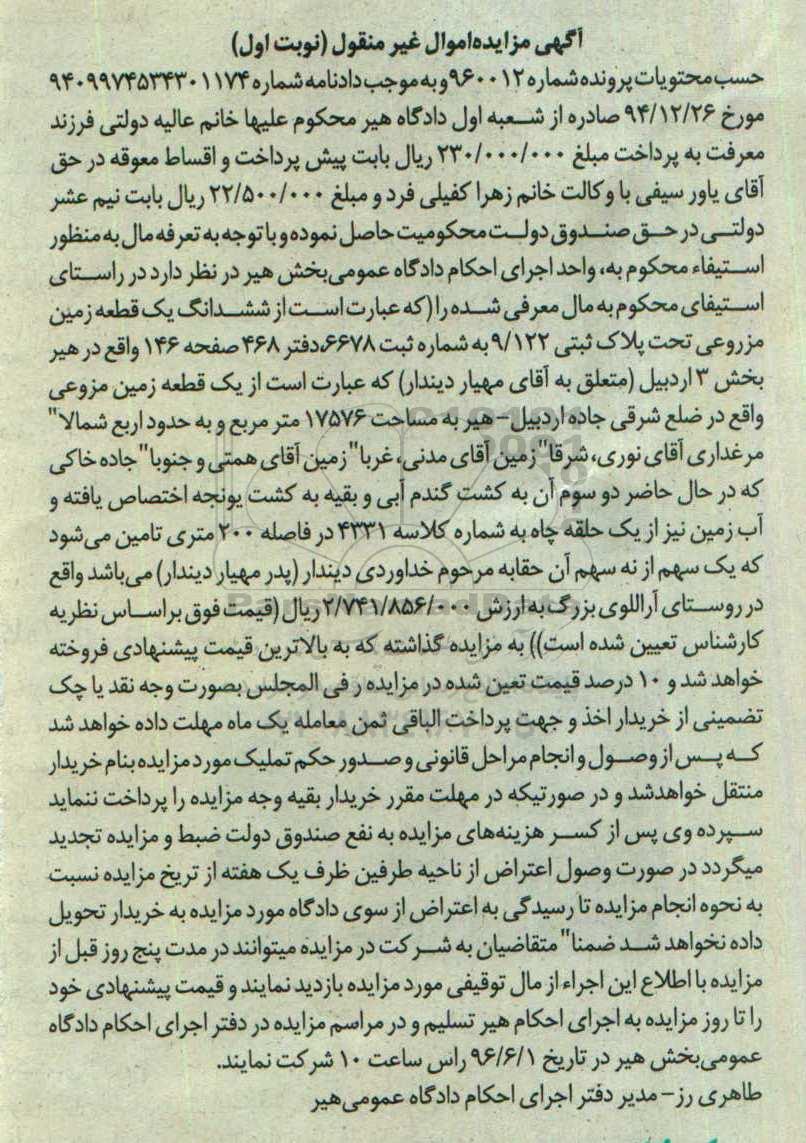 آگهی مزایده‌اموال غیر منقول (نوبت اول)
حسب محتویات پرونده شماره ۹۶۰۰۱۲ و به موجب دادنامه شماره ۹۴۰۹۹۷۴۵۳۴۳۰۱۱۷۴
مورخ ۹۴/۱۲/۲۶ صادره از شعبه اول دادگاه هیر محکوم علیها خانم عالیه دولتی فرزند
معرفت به پرداخت مبلغ ۲۳۰/۰۰۰/۰۰۰ ریال بابت پیش پرداخت و اقساط معوقه در حق
آقای یاور سیفی با وکالت خانم زهرا کفیلی فرد و مبلغ ۲۲/۵۰۰/۰۰۰ ریال بابت نیم عشر
دولتی در حق صندوق دولت محکومیت حاصل نموده و با توجه به تعرفه مال به منظور
استیفاء محکوم به، واحد اجرای احکام دادگاه عمومی‌بخش هیر در نظر دارد در راستای
استیفای محکوم به مال معرفی شده را (که عبارت است از ششدانگ یک قطعه زمین
مزروعی تحت پلاک ثبتی ۹/۱۲۲ به شماره ثبت ۶۶۷۸،دفتر ۴۶۸ صفحه ۱۴۶ واقع در هیر
بخش ۳ اردبیل (متعلق به آقای مهیار دیندار) که عبارت است از یک قطعه زمین مزوعی
واقع در ضلع شرقی جاده اردبیل-هیر به مساحت ۱۷۵۷۶ متر مربع و به حدود اربع شمالا"
مرغداری آقای نوری، شرقا" زمین آقای مدنی، غربا" زمین آقای همتی و جنوبا" جاده خاکی
که در حال حاضر دو سوم آن به کشت گندم آبی و بقیه به کشت یونجه اختصاص یافته و
آب زمین نیز از یک حلقه چاه به شماره کلاسه ۴۳۳۱ در فاصله ۲۰۰ متری تامین می‌شود
که یک سهم از نه سهم آن حقابه مرحوم خداوردی دیندار (پدر مهیار دیندار) می‌باشد واقع
در روستای آراللوی بزرگ به ارزش ۲/۷۴۱/۸۵۶/۰۰۰ ریال (قیمت فوق بر اساس نظریه
کارشناس تعیین شده است)) به مزایده گذاشته که به بالاترین قیمت پیشنهادی فروخته
خواهد شد و ۱۰ درصد قیمت تعین شده در مزایده ر فی المجلس بصورت وجه نقد یا چک
تضمینی از خریدار اخذ و جهت پرداخت الباقی ثمن معامله یک ماه مهلت داده خواهد شد
که پس از وصول و انجام مراحل قانونی و صدور حکم تملیک مورد مزایده بنام خریدار
منتقل خواهدشد و در صورتیکه در مهلت مقرر خریدار بقیه وجه مزایده را پرداخت ننماید
سپرده وی پس از کسر هزینه‌های مزایده به نفع صندوق دولت ضبط و مزایده تجدید
میگردد در صورت وصول اعتراض از ناحیه طرفین ظرف یک هفته از تریخ مزایده نسبت
به نحوه انجام مزایده تا رسیدگی به اعتراض از سوی دادگاه مورد مزایده به خریدار تحویل
داده نخواهد شد ضمنا" متقاضیان به شرکت در مزایده میتوانند در مدت پنج روز قبل از
مزایده با اطلاع این اجراء از مال توقیفی مورد مزایده بازدید نمایند و قیمت پیشنهادی خود
را تا روز مزایده به اجرای احکام هیر تسلیم و در مراسم مزایده در دفتر اجرای احکام دادگاه
عمومی‌بخش هیر در تاریخ ۹۶/۶/۱ راس ساعت ۱۰ شرکت نمایند.
طاهری رز- مدیر دفتر اجرای احکام دادگاه عمومی‌هیر